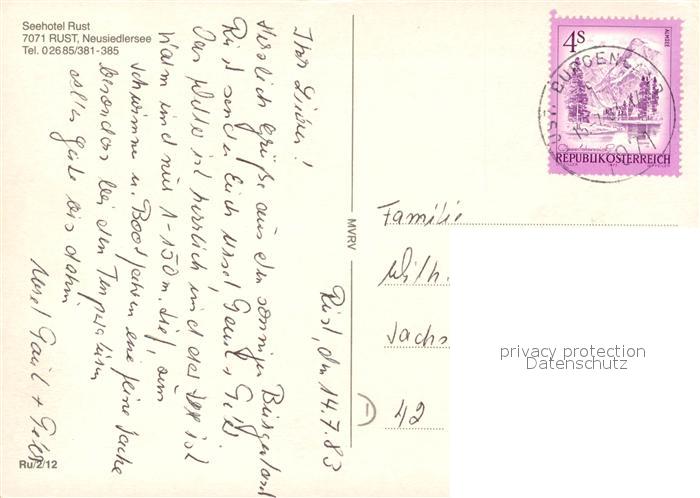 Seehotel Rust
7071 RUST, Neusiedlersee
Tel. 0 26 85/381-385
Rust, den 14.7.83
Ihr Lieben!
Herzlich Grüße aus dem sonnigen Burgenland
Rust senden Euch Ursel, Gerhild,
Das Wetter ist herrlich und der See ist
warm und nur 1-1,50 m. tief, zum
schwimmen u. Bootfahren eine feine Sache
besonders bei den Temperaturen
alles gute bis dahin
Ursel +
Ru/2/12
MVRV
4S
ALMSEE
REPUBLIK ÖSTERREICH
RUST, BURGENLAND
7071
Familie
Wilh.
Sachs
42
privacy protection
Datenschutz